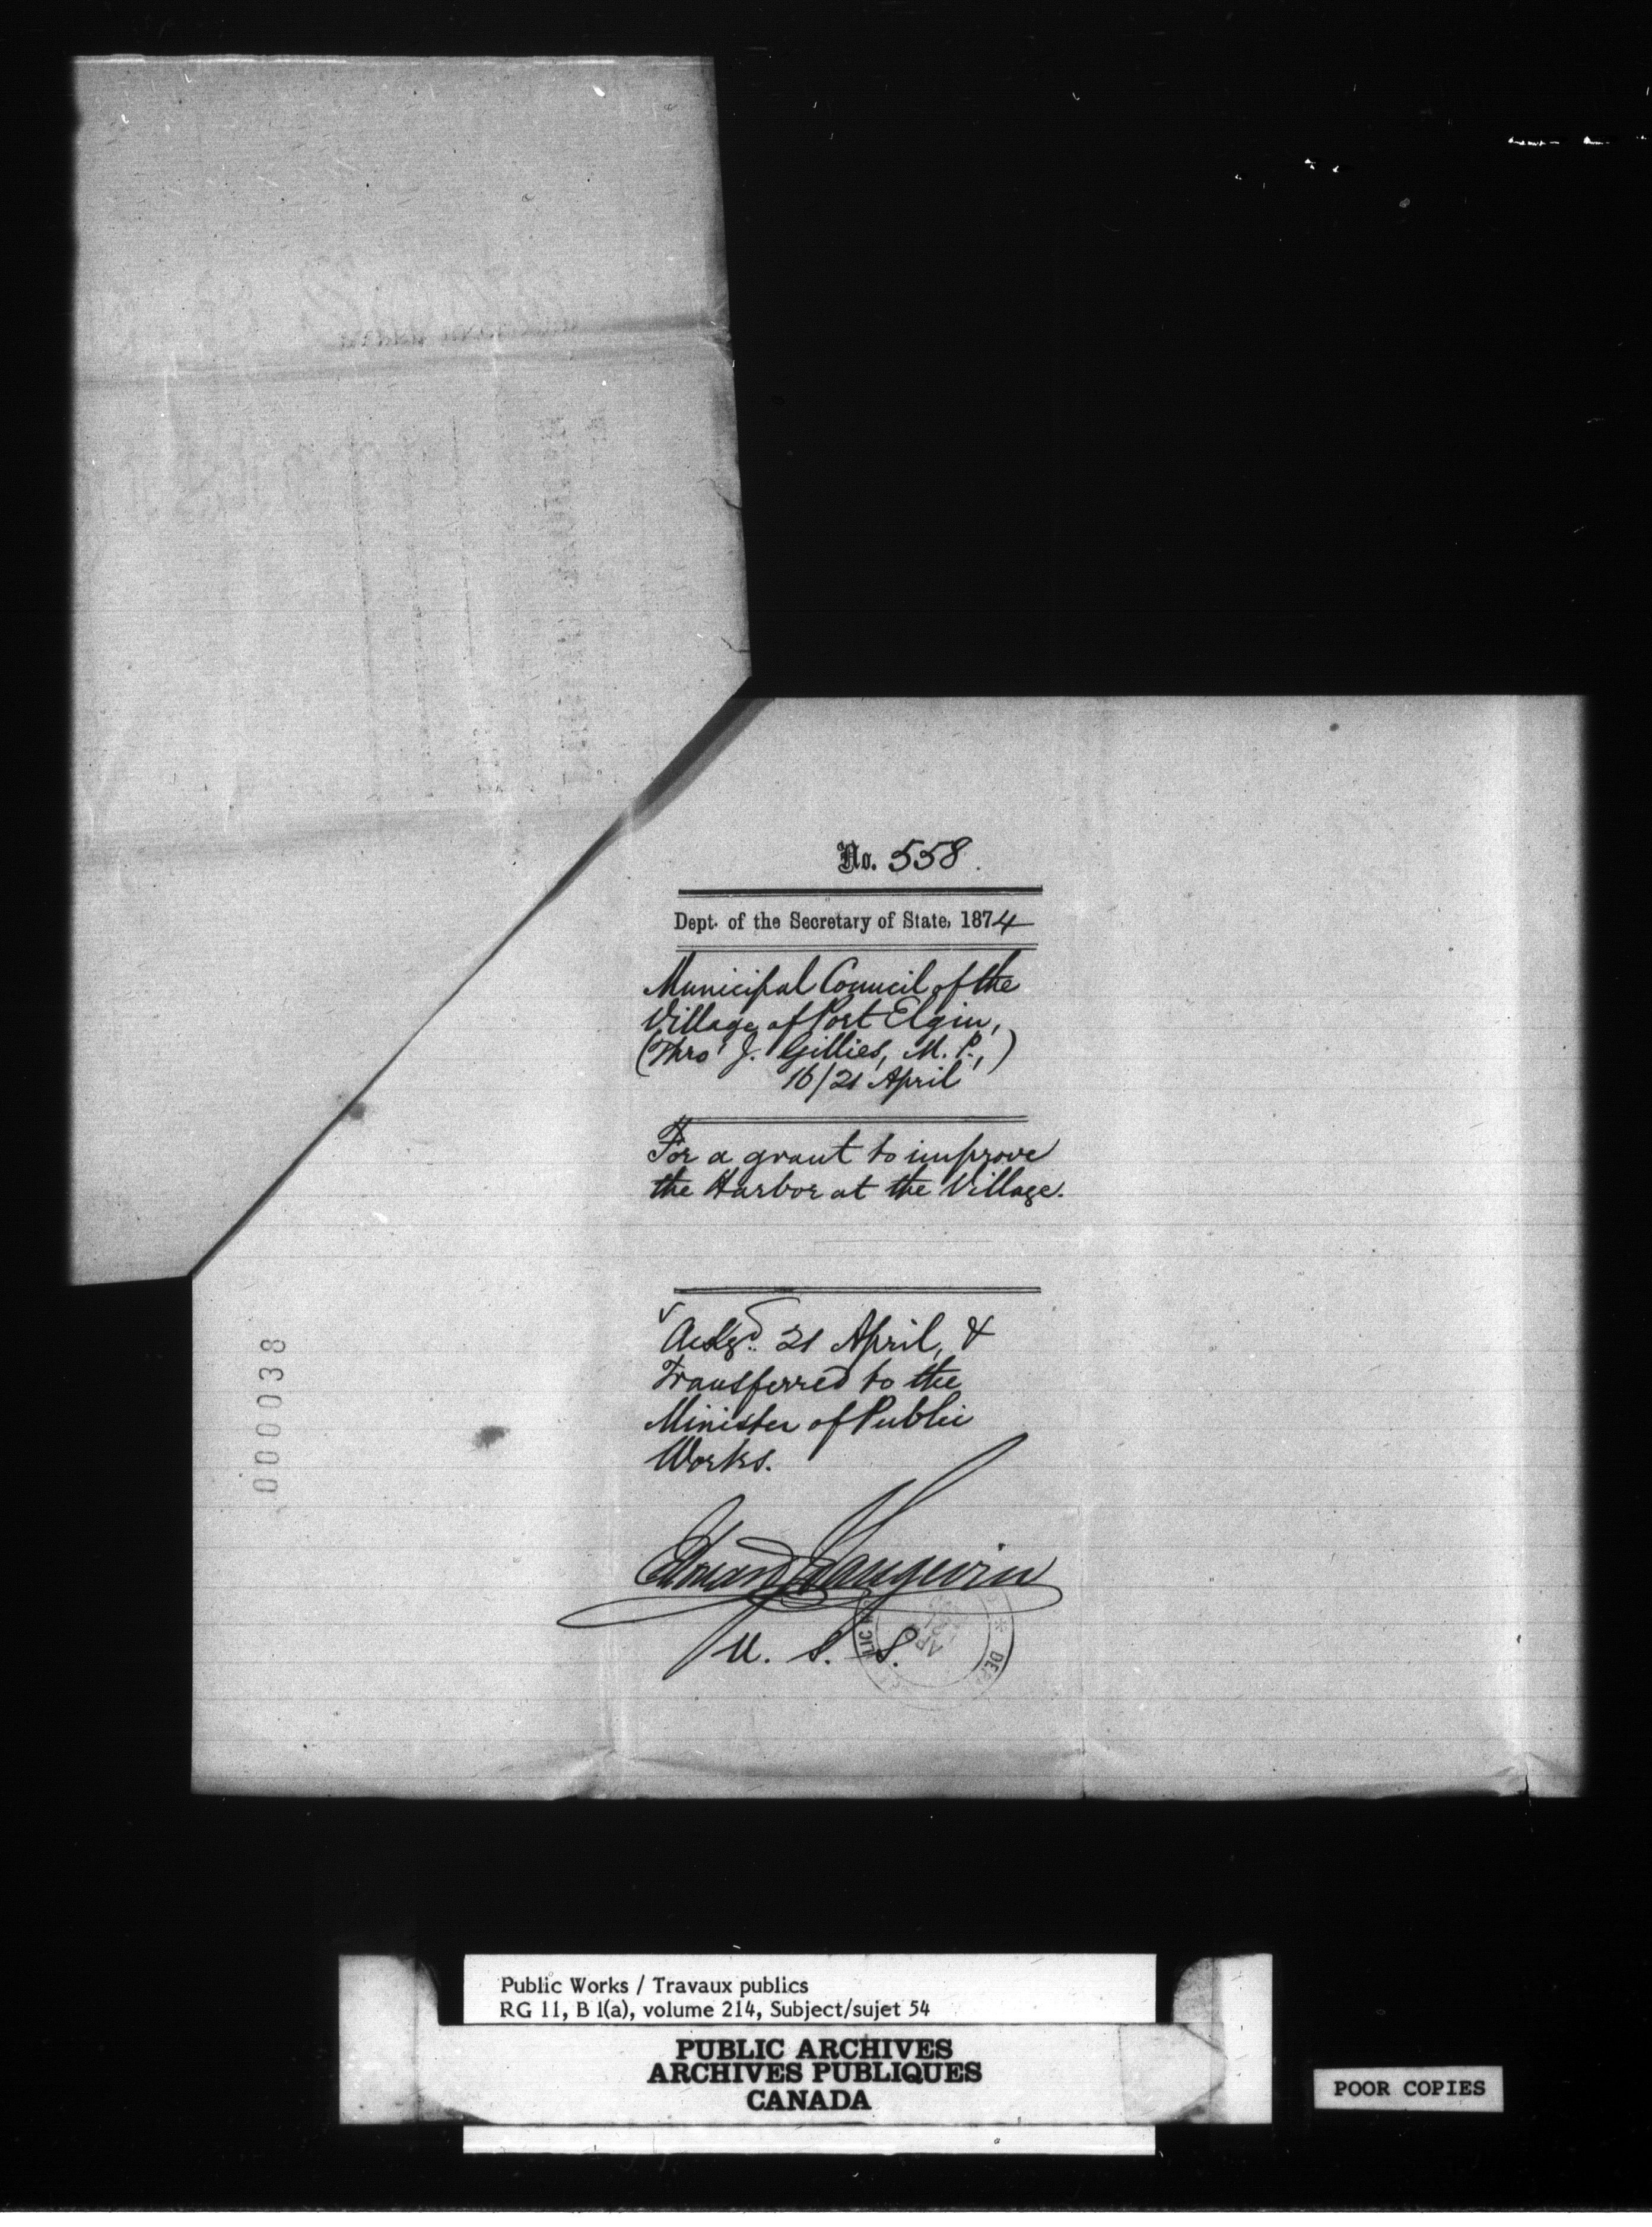 No. 558.
Dept. of the Secretary of State, 1874
Municipal Council of the
Village of Port Elgin,
(Thro' J. Gillies, M. P.,)
16/21 April
For a grant to improve
the Harbor at the Village.
Ackgd. 21 April, &
Transferred to the
Minister of Public
Works.
Edouard Langevin
U. S. S.
000038
Public Works / Travaux publics
RG 11, B 1(a), volume 214, Subject/sujet 54
PUBLIC ARCHIVES
ARCHIVES PUBLIQUES
CANADA
POOR COPIES